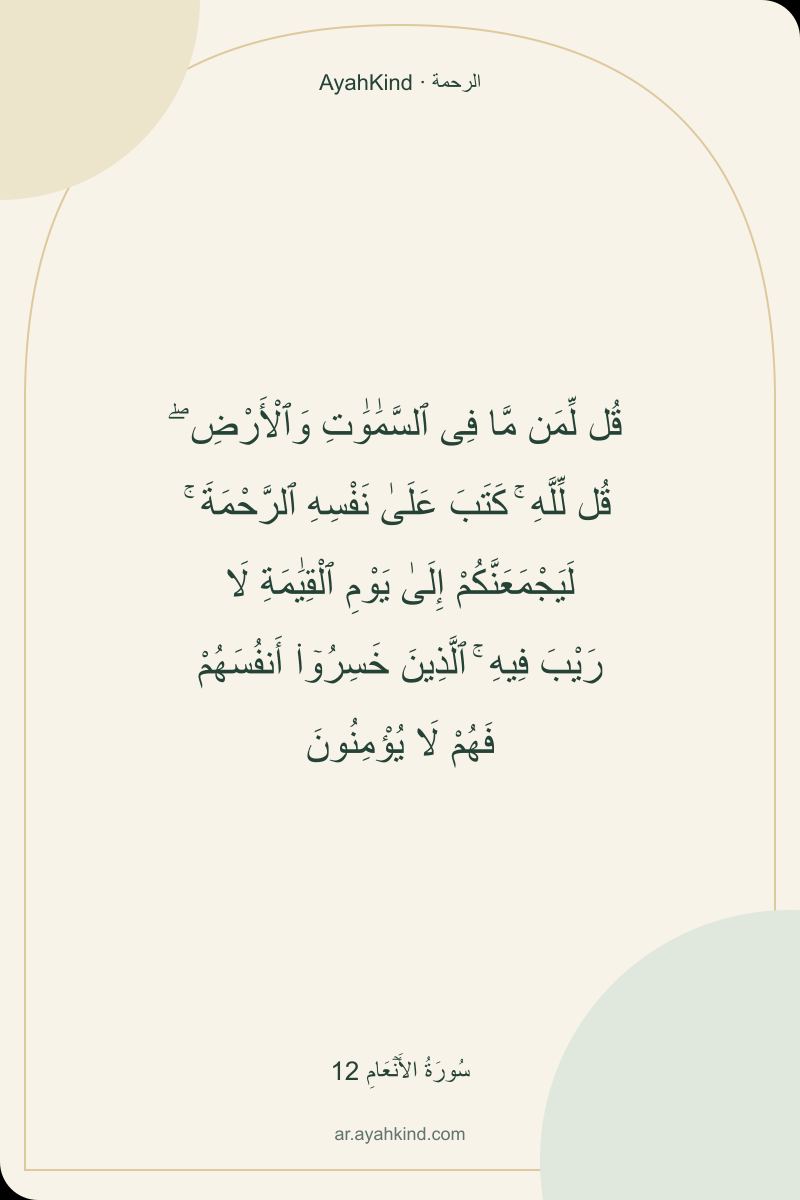 AyahKind · الرحمة
قُل لِّمَن مَّا فِى ٱلسَّمَٰوَٰتِ وَٱلْأَرْضِ ۖ
قُل لِّلَّهِ ۚ كَتَبَ عَلَىٰ نَفْسِهِ ٱلرَّحْمَةَ ۚ
لَيَجْمَعَنَّكُمْ إِلَىٰ يَوْمِ ٱلْقِيَٰمَةِ لَا
رَيْبَ فِيهِ ۚ ٱلَّذِينَ خَسِرُوٓا۟ أَنفُسَهُمْ
فَهُمْ لَا يُؤْمِنُونَ
سُورَةُ الأَنۡعَامِ 12
ar.ayahkind.com